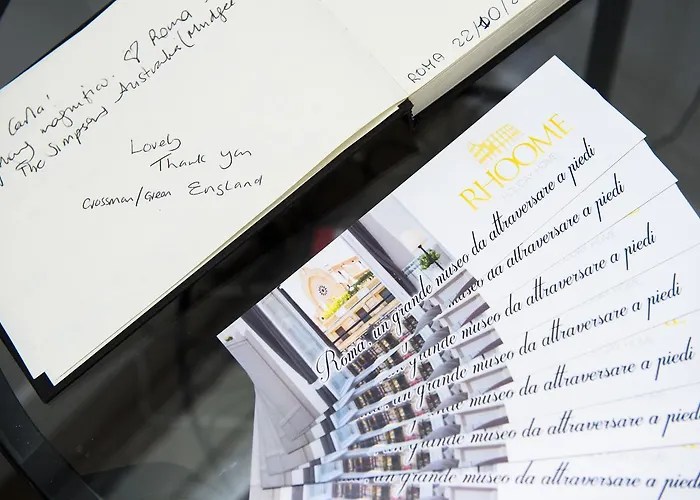 Carla!
magnifico. ♡ Roma
The Simpsons Australia (Mudgee
Lovely
Thank you
Crossman/Green England
ROMA 22/10/20
RHOOME
Roma, un grande museo da attraversare a piedi
museo da attraversare a piedi
un grande museo da attraversare a piedi
un grande museo da attraversare a piedi
un grande museo da attraversare a piedi
un grande museo da attraversare a piedi
un grande museo da attraversare a piedi